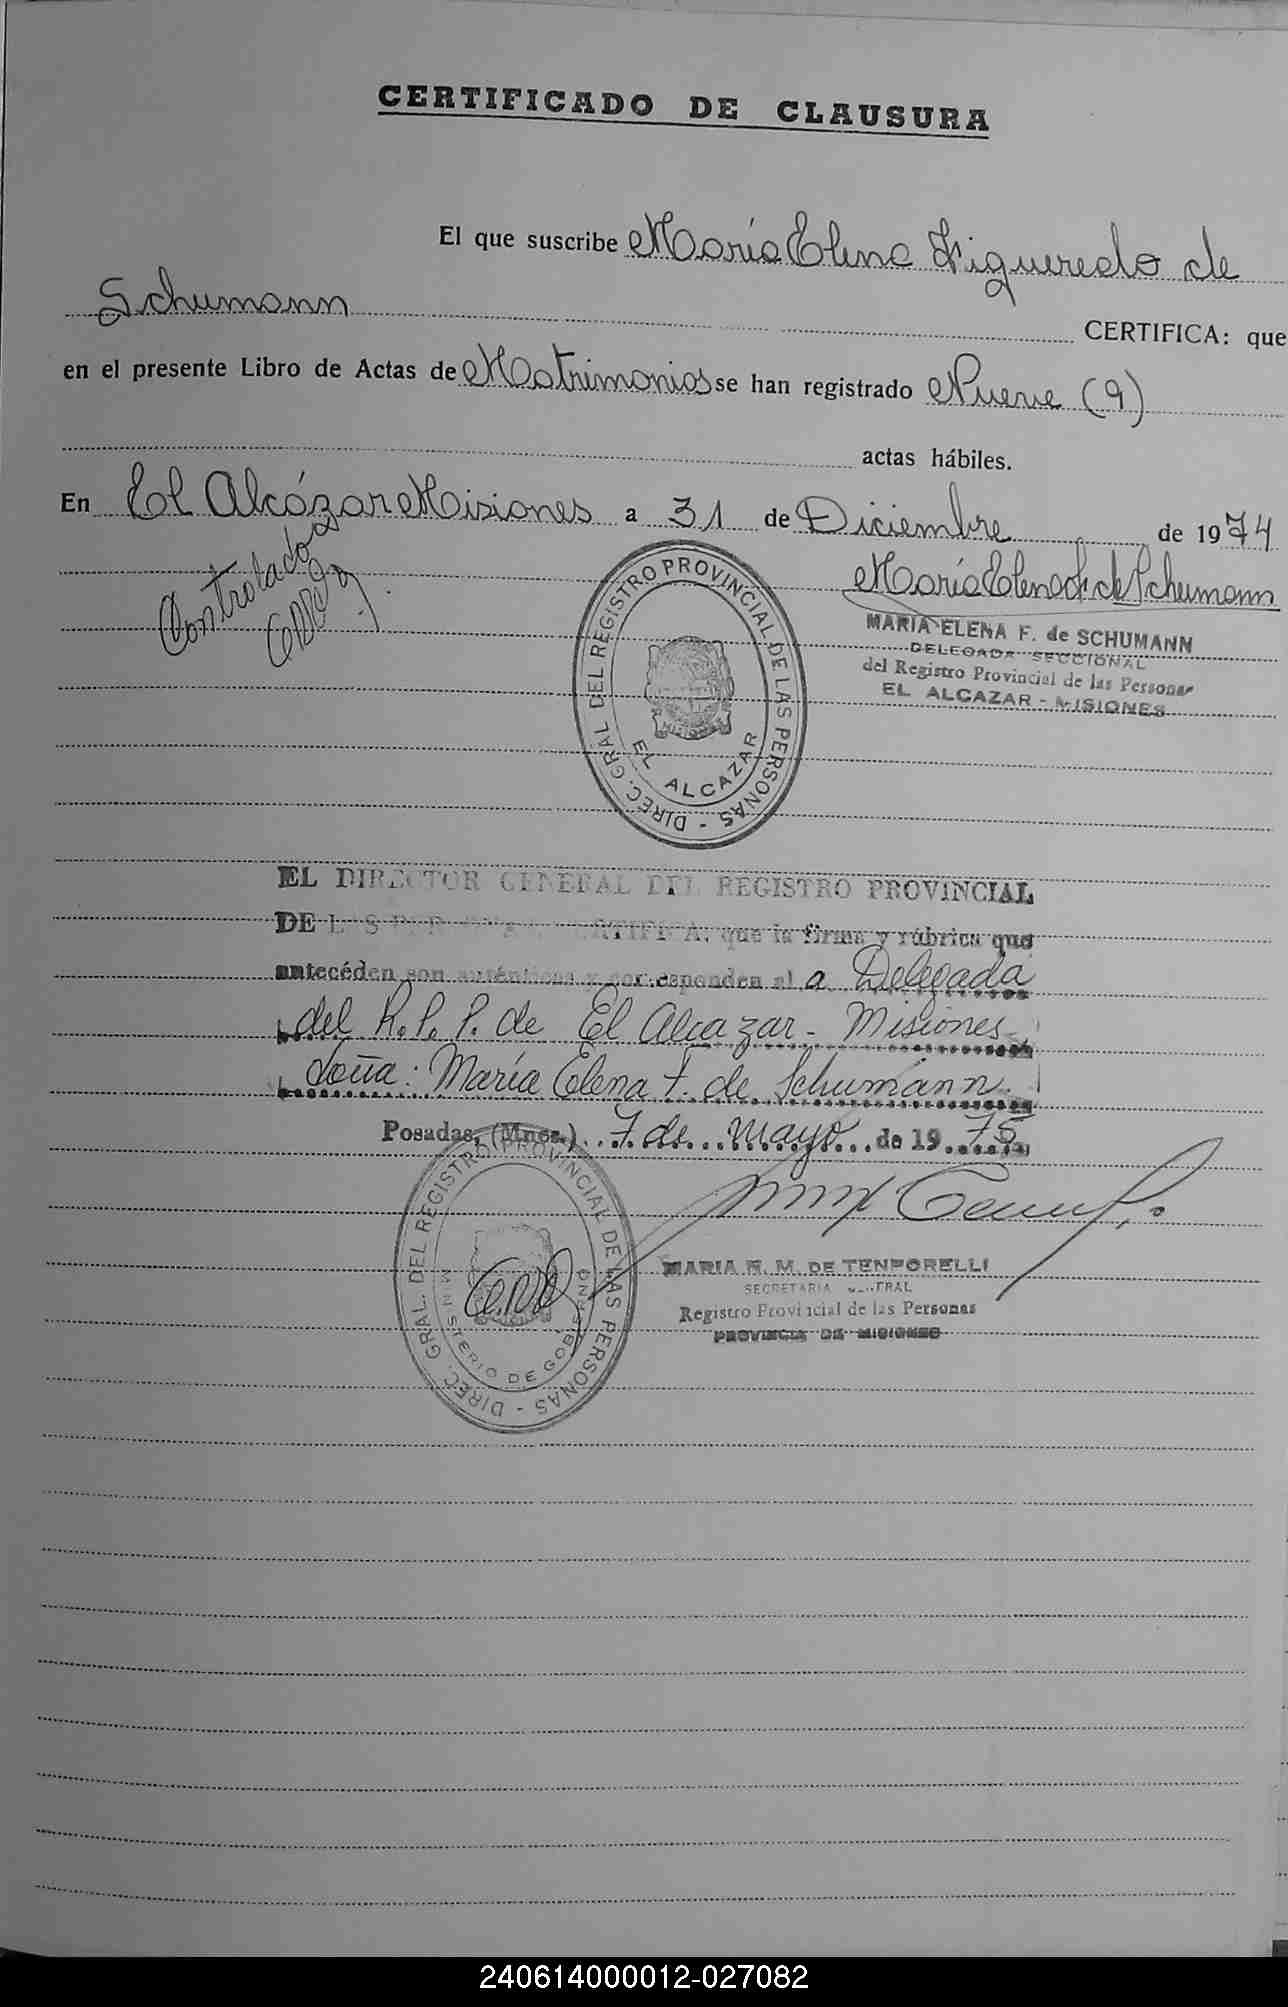 CERTIFICADO DE CLAUSURA
El que suscribe María Elena Figueredo de
Schumann CERTIFICA: que
en el presente Libro de Actas de Matrimonios se han registrado Nueve (9)
actas hábiles.
En El Alcázar Misiones a 31 de Diciembre de 1974
Controlado
María Elena F. de Schumann
MARIA ELENA F. de SCHUMANN
DELEGADA SECCIONAL
del Registro Provincial de las Personas
EL ALCAZAR - MISIONES
DIREC. GRAL DEL REGISTRO PROVINCIAL DE LAS PERSONAS -
MISIONES
EL ALCAZAR
EL DIRECTOR GENERAL DEL REGISTRO PROVINCIAL
DE LAS PERSONAS CERTIFICA: que la firma y rúbrica que
antecéden son auténticas y corresponden al a Delegada
del R. P. P. de El Alcazar - Misiones
doña: María Elena F. de Schumann.
Posadas, (Mnes.) 7 de mayo de 1975
DIREC. GRAL. DEL REGISTRO PROVINCIAL DE LAS PERSONAS -
MINISTERIO DE GOBIERNO
MARIA M. DE TEMPORELLI
SECRETARIA GENERAL
Registro Provincial de las Personas
PROVINCIA DE MISIONES
240614000012-027082